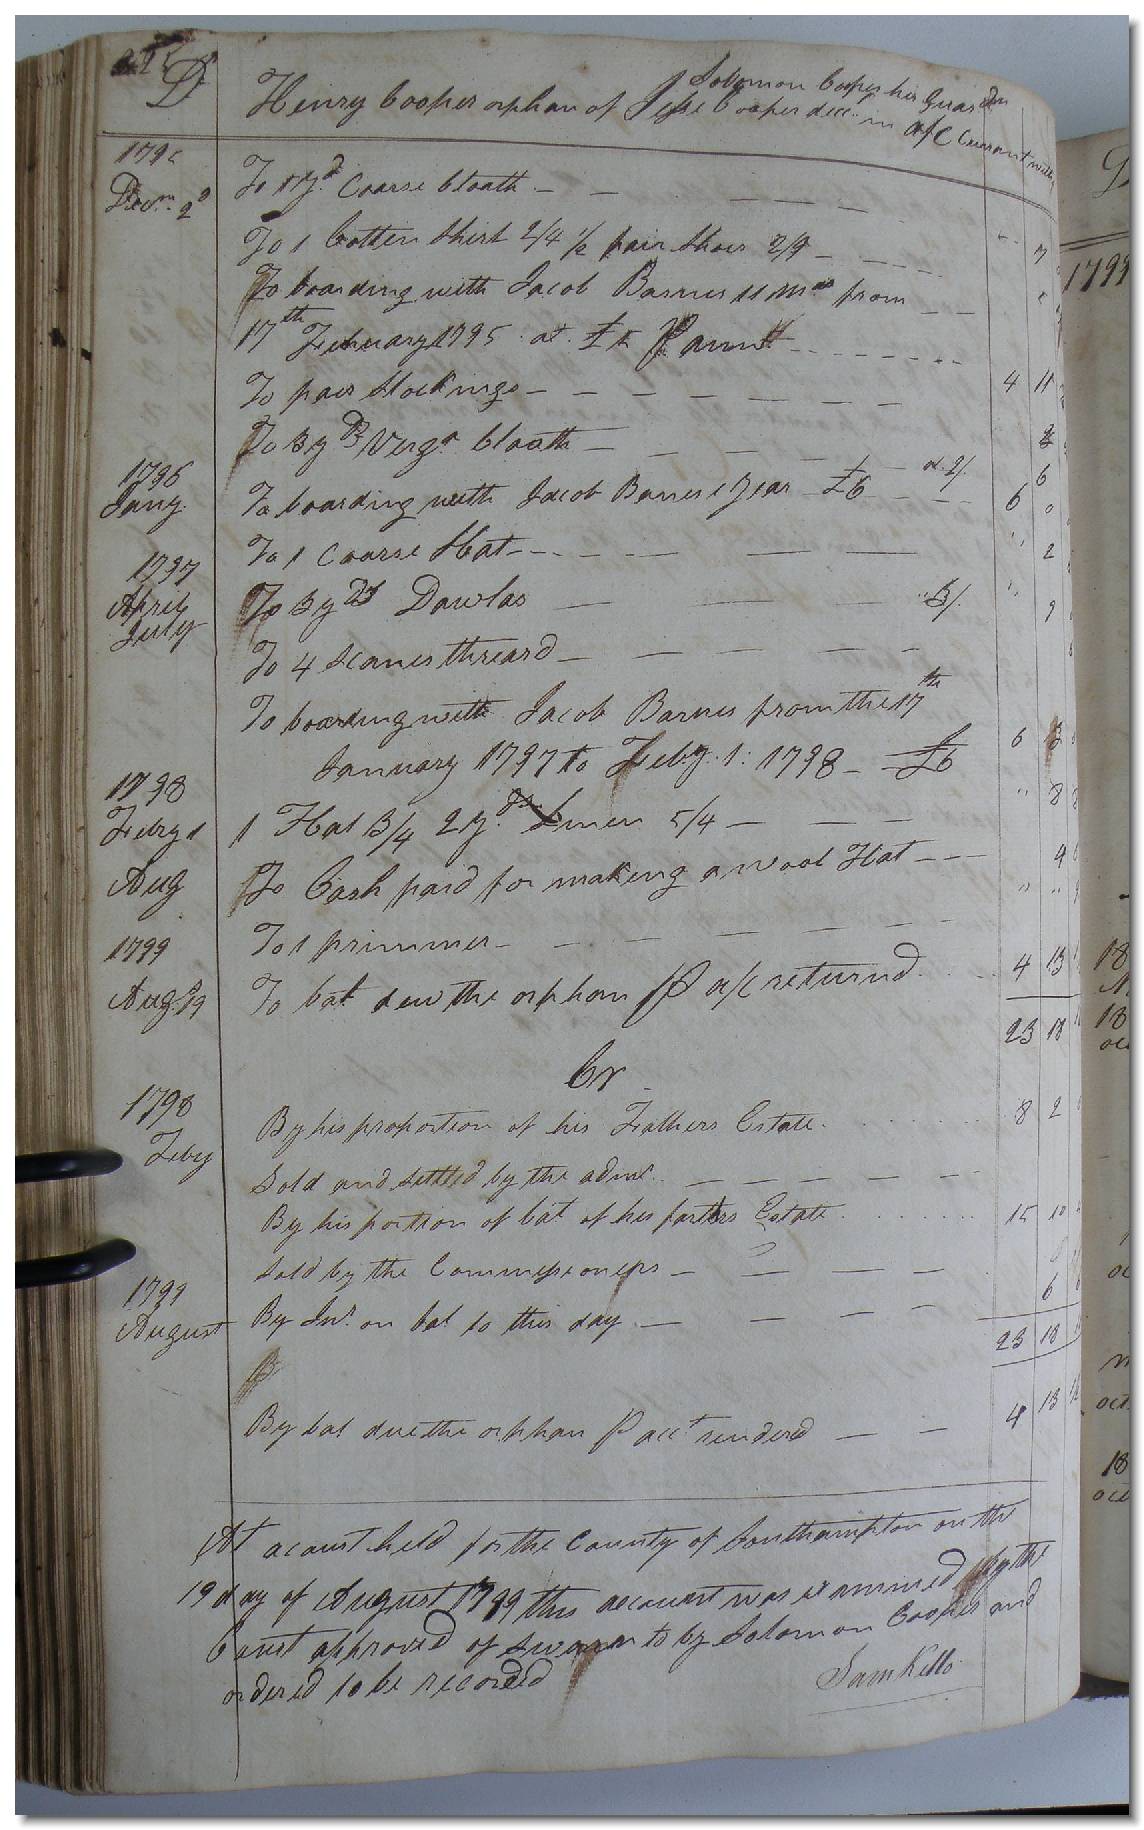 D Henry Cooper orphan of Jesse Cooper decd. in a/c Currant with
Solomon Cooper his Guardn
179
Decmr. 2d To 1 yd. Coarse Cloath
To 1 Cotten Shirt 2/4 ½ pair Shoes 2/9 7
To boarding with Jacob Barnes 11 Mos from
17th February 1795 at £5 P annm 4 11
To pair Stockings
To 3 yds Virga Cloath at 2/. 6
1796
Jany To boarding with Jacob Barnes 1 Year £6 6 0
To 1 Coarse Hat 2
1797
April To 3 yds Dowlas 3/. 9
July
To 4 Scanes threard
To boarding with Jacob Barnes from the 17th
January 1797 to Feby. 1: 1798 £6 6
1798
Febry 1 1 Hat 3/4 2 yds. Linen 5/4 8 8
Aug To Cash paid for making a wool Hat 4
To 1 primmer
1799
Augt 19 To bal due the orphan P a/c returnd 4 13
23 18
Cr
1798
Feby By his proportion of his Fathers Estate 8 2
Sold and settled by the admr.
By his portion of bal of his farthers Estate 15 10
Sold by the Commissioners
1799
August By Int. on bal to this day 6
23 18
By bal due the orphan P acct rendered 4 13
At a court held for the County of Southampton on the
19 day of August 1799 this account was examined by the
Court approved of sworn to by Solomon Cooper and
ordered to be recorded
Sam Kello
1799
18
18
oct
18